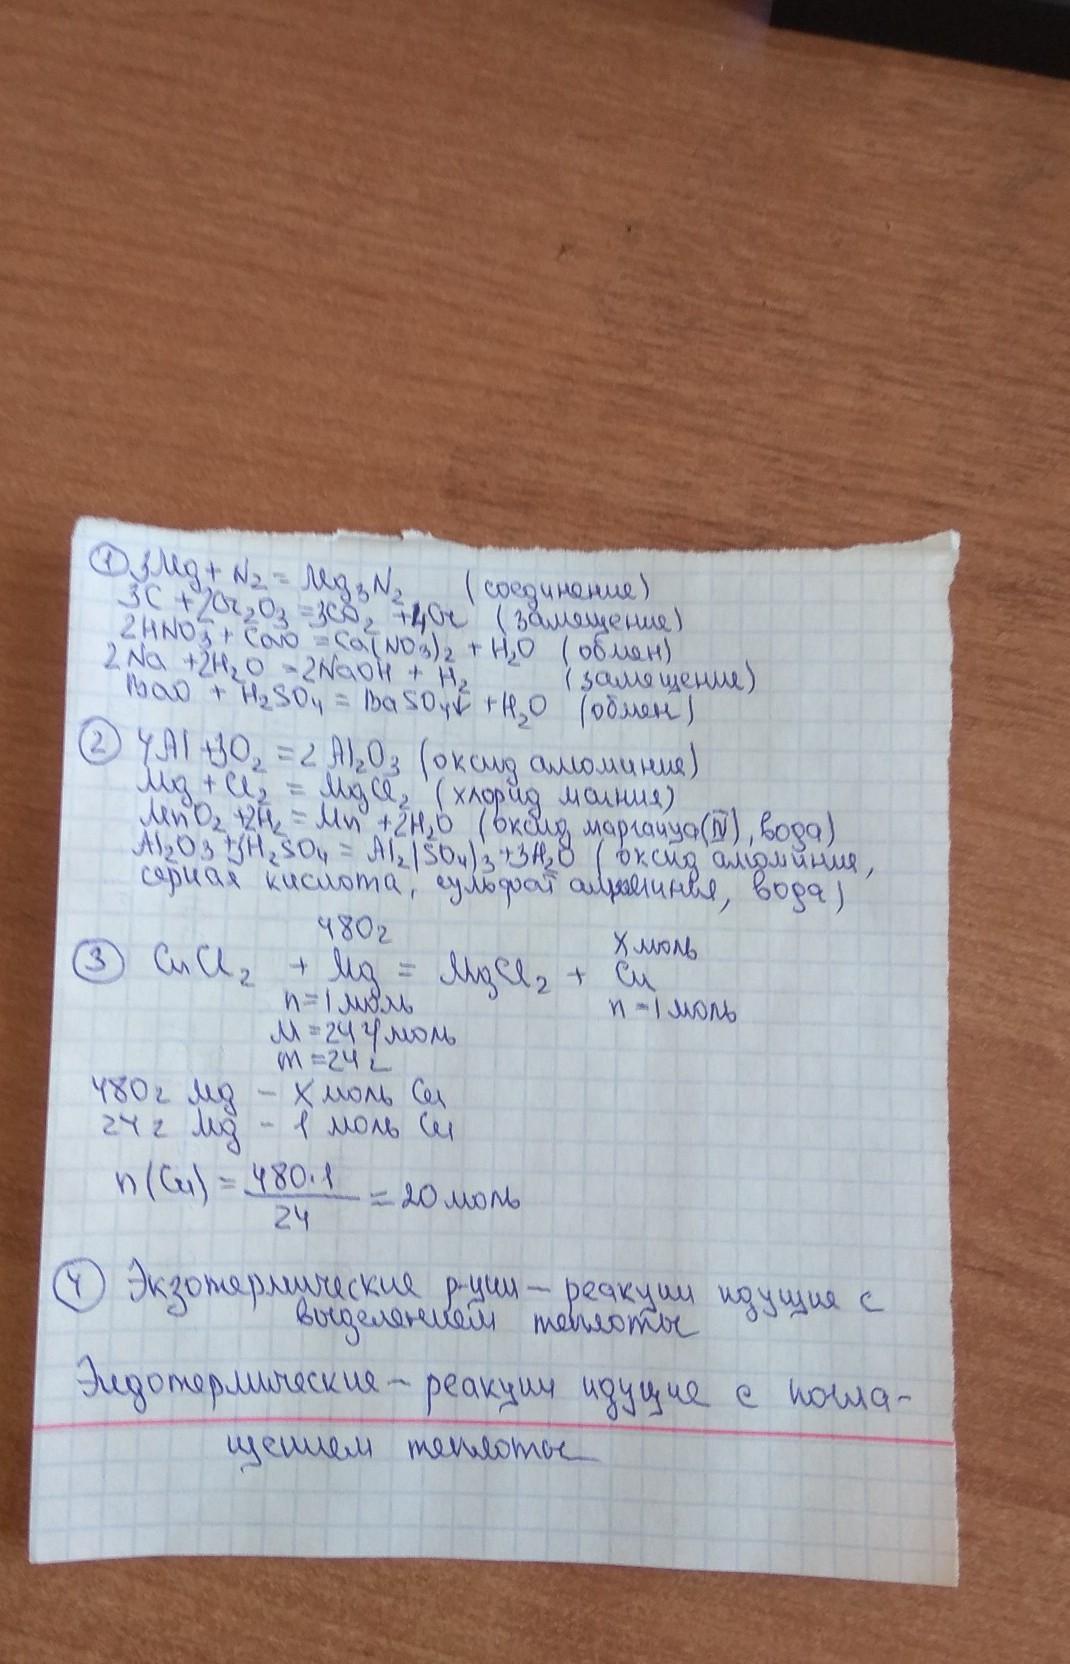 ① 3Mg + N₂ = Mg₃N₂ (соединение)
3C + 2Cr₂O₃ = 3CO₂ + 4Cr (замещение)
2HNO₃ + CaO = Ca(NO₃)₂ + H₂O (обмен)
2Na + 2H₂O = 2NaOH + H₂ (замещение)
BaO + H₂SO₄ = BaSO₄↓ + H₂O (обмен)
② 4Al + 3O₂ = 2Al₂O₃ (оксид алюминия)
Mg + Cl₂ = MgCl₂ (хлорид магния)
MnO₂ + 2H₂ = Mn + 2H₂O (оксид марганца(IV), вода)
Al₂O₃ + 3H₂SO₄ = Al₂(SO₄)₃ + 3H₂O (оксид алюминия,
серная кислота, сульфат алюминия, вода)
480г
x моль
③ CuCl₂ + Mg = MgCl₂ + Cu
n=1моль n=1моль
M=24г/моль
m=24г
480г Mg – x моль Cu
24г Mg – 1 моль Cu
n(Cu) = 480·1
= 20моль
24
④ Экзотермические р-ции – реакции идущие с
выделением теплоты
Эндотермические – реакции идущие с погла-
щением теплоты